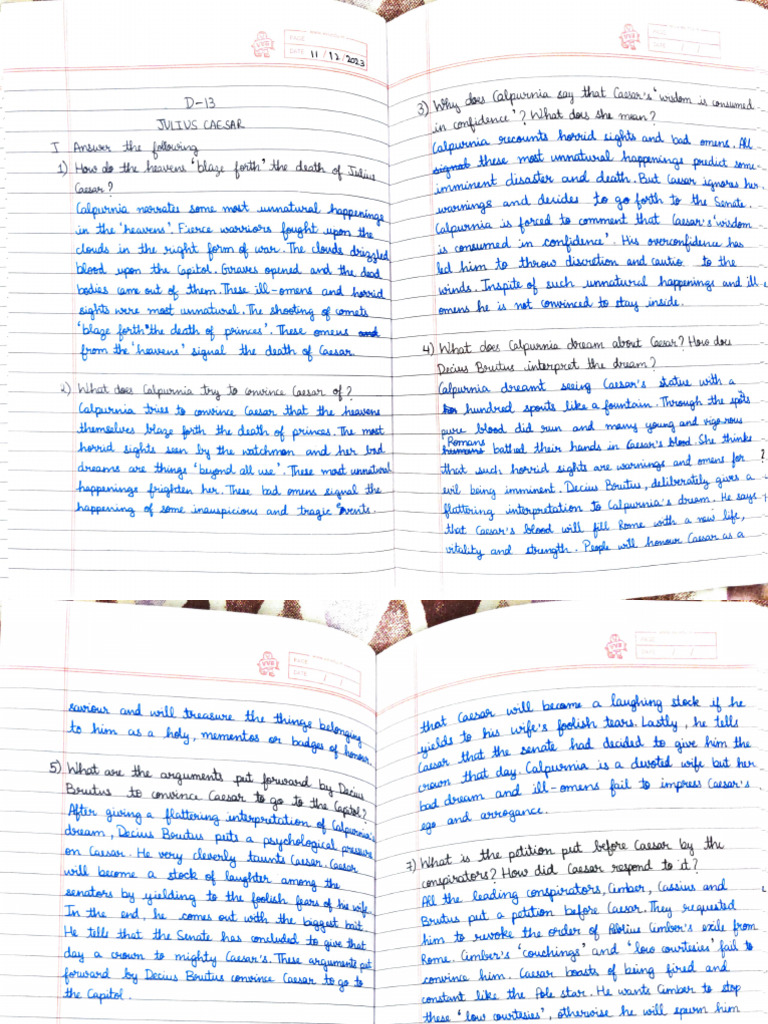 PAGE
DATE 11/12/2023
D-13
JULIUS CAESAR
I Answer the following
1) How do the heavens 'blaze forth' the death of Julius
Caesar?
Calpurnia narrates some most unnatural happenings
in the 'heavens'. Fierce warriors fought upon the
clouds in the right form of war. The clouds drizzled
blood upon the Capitol. Graves opened and the dead
bodies came out of them. These ill-omens and horrid
sights were most unnatural. The shooting of comets
'blaze forth' the death of princes'. These omens and
from the 'heavens' signal the death of Caesar.
2) What does Calpurnia try to convince Caesar of?
Calpurnia tries to convince Caesar that the heavens
themselves blaze forth the death of princes. The most
horrid sights seen by the watchmen and her bad
dreams are things 'beyond all use'. These most unnatural
happenings frighten her. These bad omens signal the
happening of some inauspicious and tragic events.
PAGE
DATE / /
3) Why does Calpurnia say that Caesar's 'wisdom is consumed
in confidence'? What does she mean?
Calpurnia recounts horrid sights and bad omens. All
signal these most unnatural happenings predict some
imminent disaster and death. But Caesar ignores her
warnings and decides to go forth to the Senate.
Calpurnia is forced to comment that Caesar's 'wisdom
is consumed in confidence'. His overconfidence has
led him to throw discretion and cautio to the
winds. Inspite of such unnatural happenings and ill-
omens he is not convinced to stay inside.
4) What does Calpurnia dream about Caesar? How doe
Decius Brutus interpret the dream?
Calpurnia dreamt seeing Caesar's statue with a
hundred sports like a fountain. Through the spots
pure blood did run and many young and vigorous
Romans
humans bathed their hands in Caesar's blood. She thinks
that such horrid sights are warnings and omens for
evil being imminent. Decius Brutus, deliberately gives a
flattering interpretation to Calpurnia's dream. He says
that Caesar's blood will fill Rome with a new life,
vitality and strength. People will honour Caesar as a
PAGE
DATE / /
saviour and will treasure the things belonging
to him as a holy, mementos or badges of honour.
5) What are the arguments put forward by Decius
Brutus to convince Caesar to go to the Capitol?
After giving a flattering interpretation of Calpurnia's
dream, Decius Brutus puts a psychological pressure
on Caesar. He very cleverly taunts Caesar. Caesar
will become a stock of laughter among the
senators by yielding to the foolish fears of his wife.
In the end, he comes out with the biggest bait.
He tells that the Senate has concluded to give that
day a crown to mighty Caesar's. These arguments put
forward by Decius Brutus convince Caesar to go to
the Capitol.
PAGE
DATE / /
that Caesar will become a laughing stock if he
yields to his wife's foolish tears. Lastly, he tells
Caesar that the senate had decided to give him the
crown that day. Calpurnia is a devoted wife but her
bad dream and ill-omens fail to impress Caesar's
ego and arrogance.
7) What is the petition put before Caesar by the
conspirators? How did Caesar respond to it?
All the leading conspirators, Cimber, Cassius and
Brutus put a petition before Caesar. They requested
him to revoke the order of Publius Cimber's exile from
Rome. Cimber's 'couchings' and 'low courtesies' fail to
convince him. Caesar boasts of being fixed and
constant like the Pole star. He wants Cimber to stop
these 'low courtesies', otherwise he will spurn him